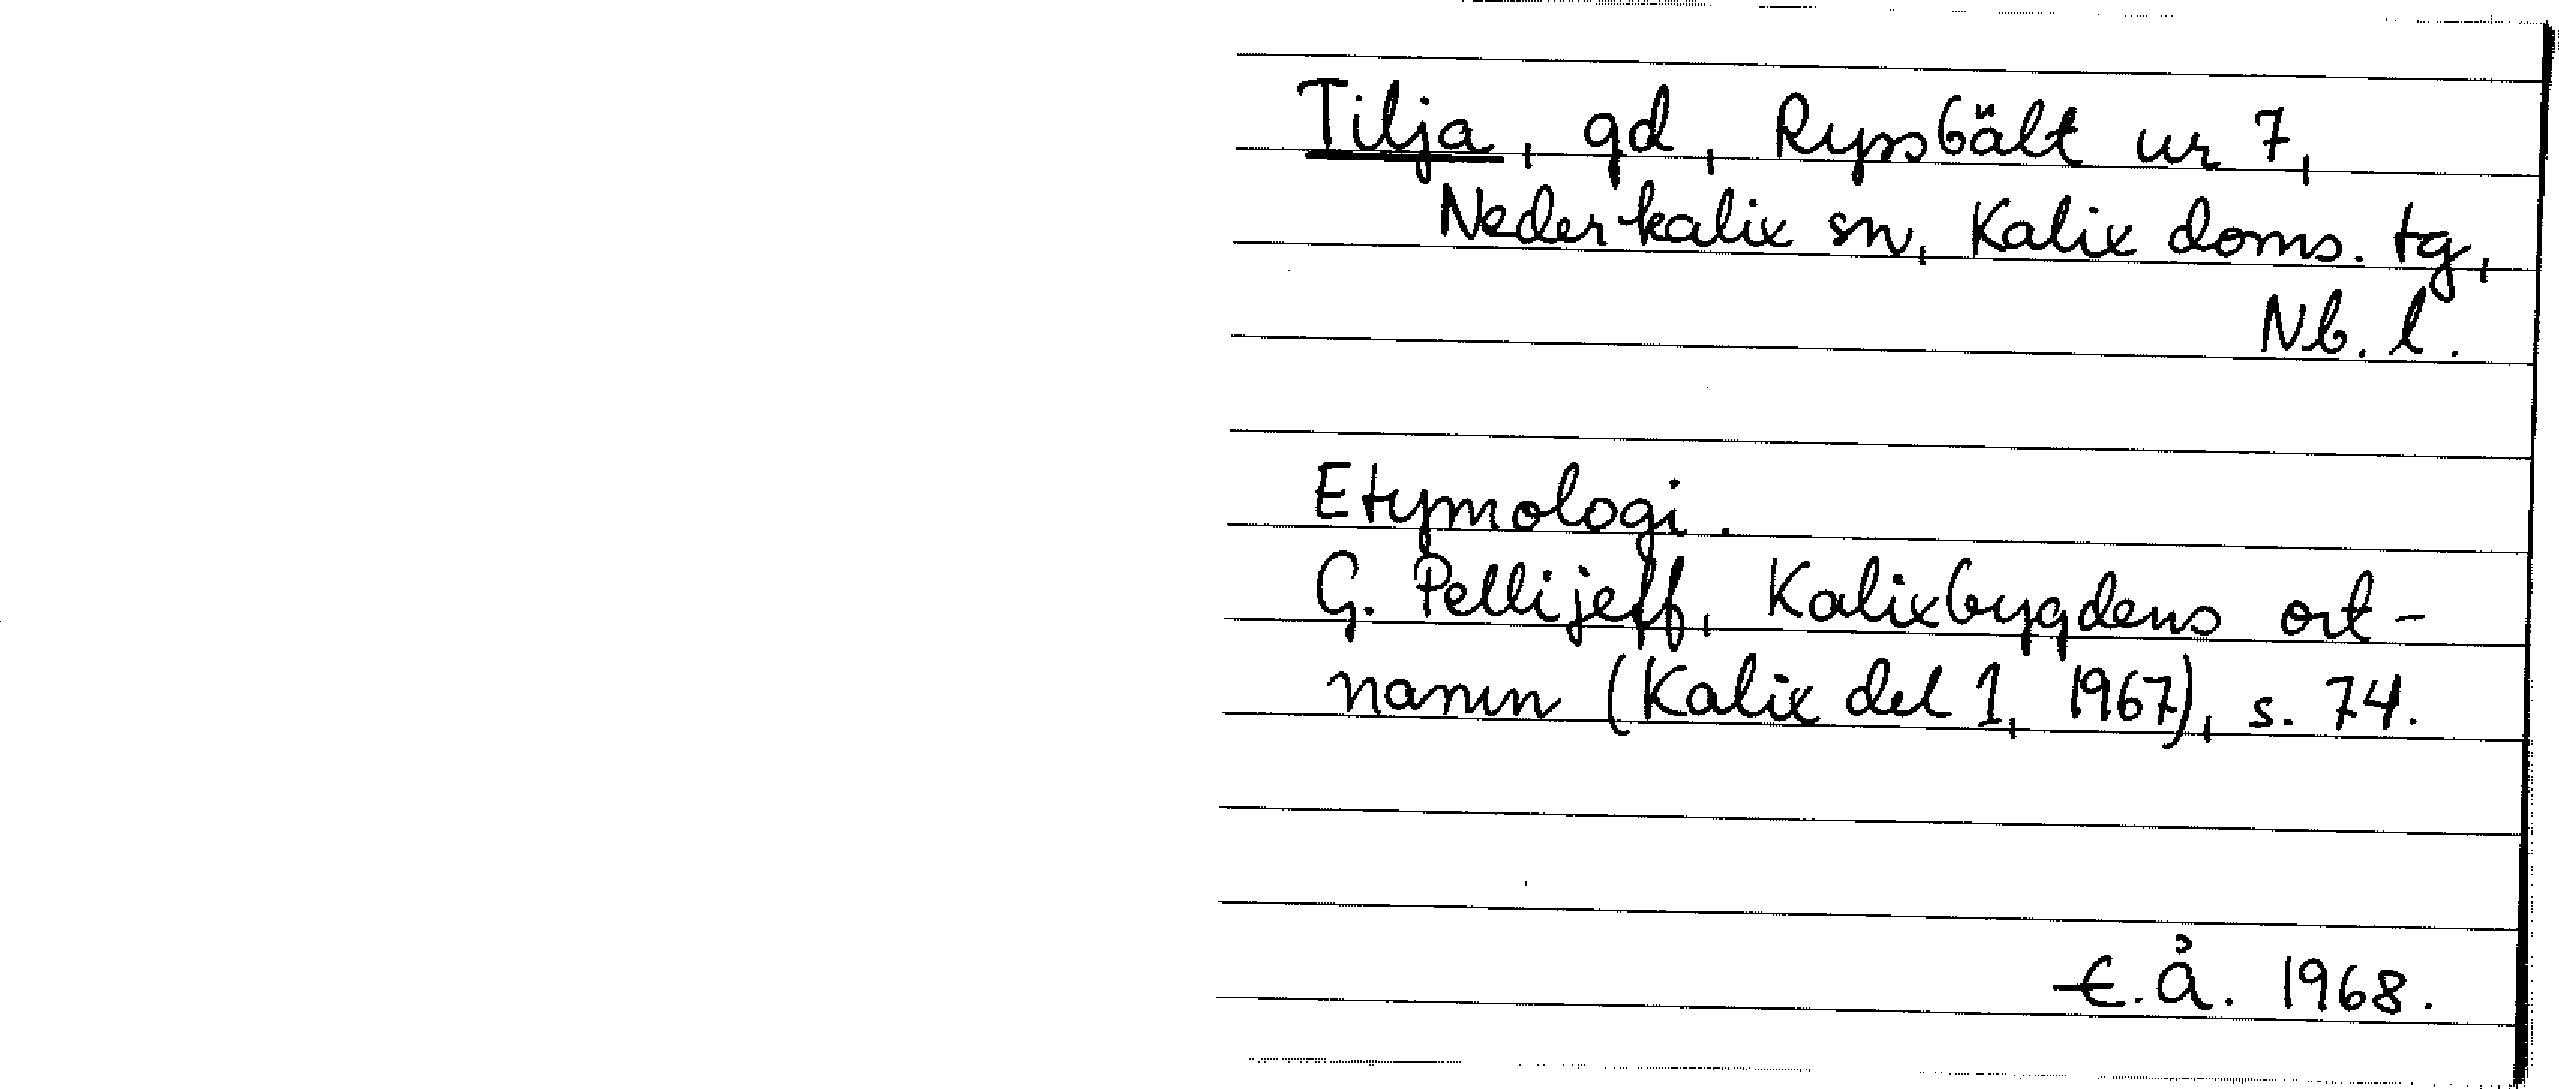 Tilja, gd, Ryssbält nr 7,
Nederkalix sn, Kalix doms. tg,
Nb. l.
Etymologi.
G. Pellijeff, Kalixbygdens ort-
namn (Kalix del 1, 1967), s. 74.
E.Å. 1968.